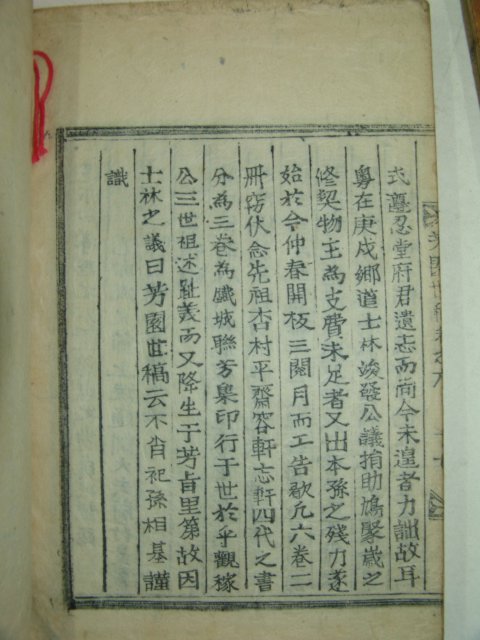 芳園世稿卷之六
式忍堂府君遺志而尙今未遑者力詘故耳
粤在庚戌鄕道士林竣發公議捐助鳩聚歲之
修契物主為支費未足者又出本孫之殘力遂
始於今仲春開板三閱月而工告歇凡六卷二
冊窃伏念先祖杏村平齋容軒忘軒四代之書
分為三卷為鐵城聯芳集印行于世於乎觀稼
公三世祖述趾美而又降生于芳旨里第故因
士林之議曰芳園世稿云不肖祀孫相基謹
識